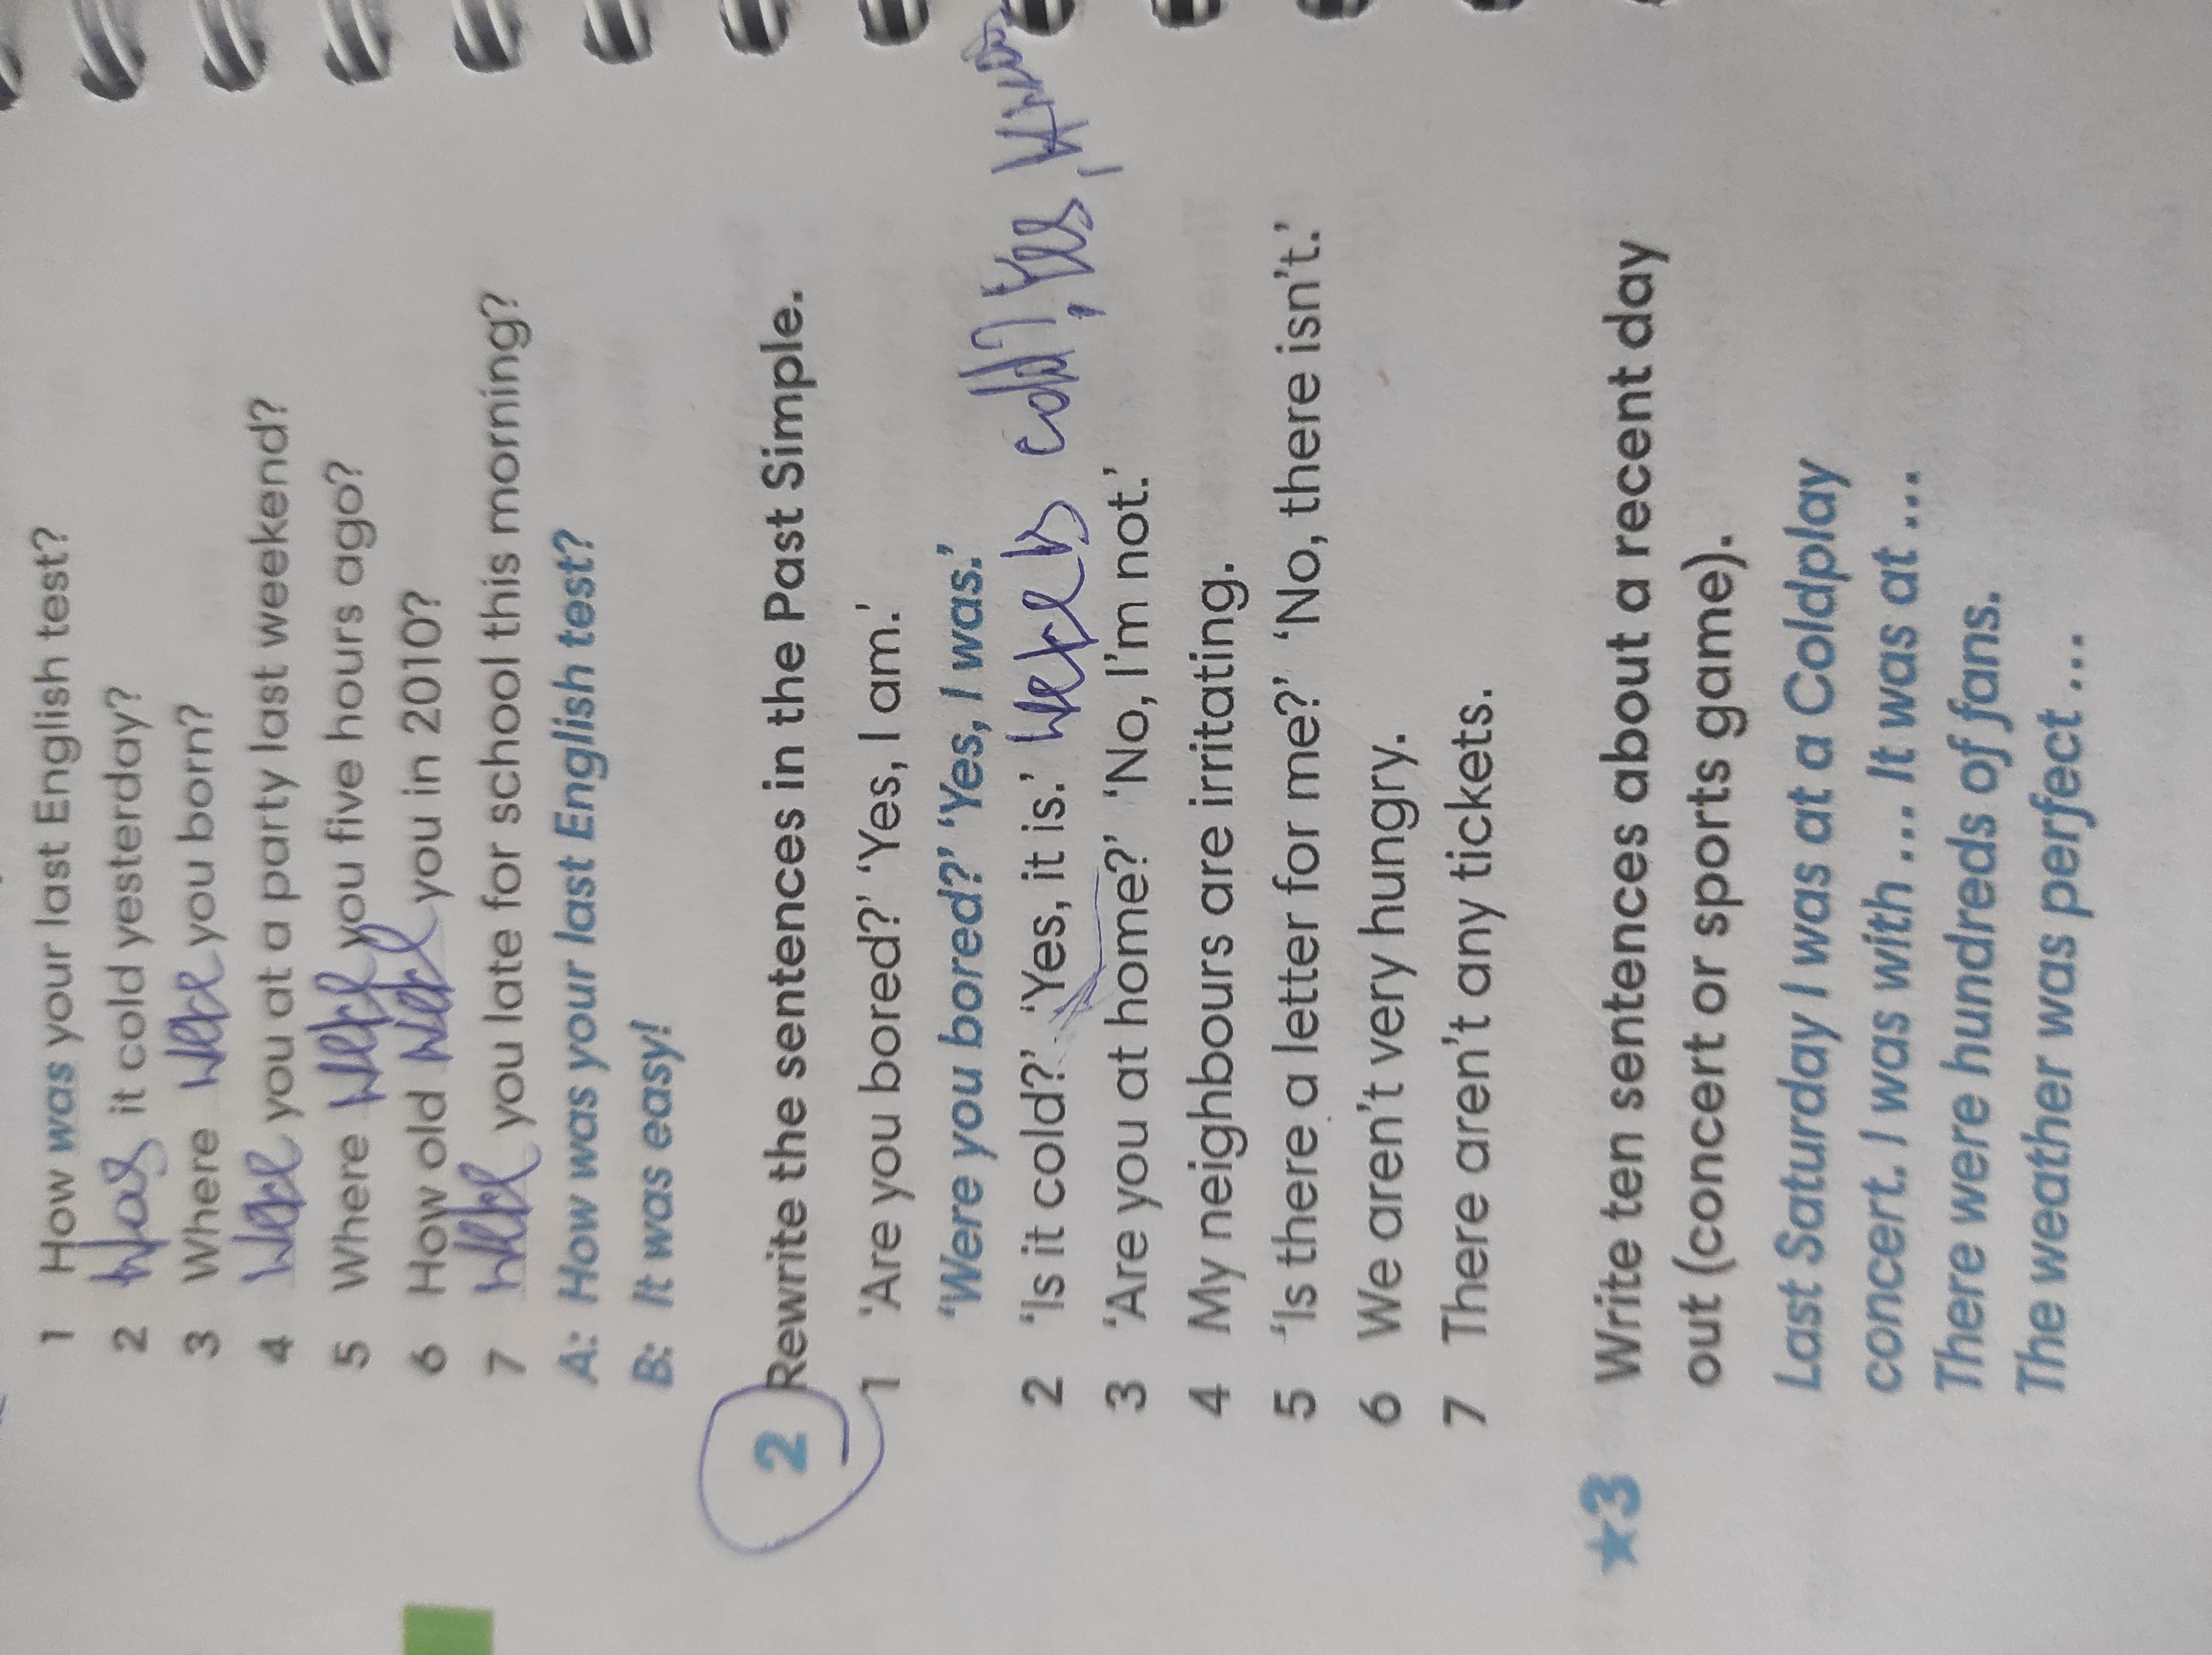 1 How was your last English test?
2 was it cold yesterday?
3 Where were you born?
4 were you at a party last weekend?
5 Where were you five hours ago?
6 How old were you in 2010?
7 were you late for school this morning?
A: How was your last English test?
B: It was easy!
2 Rewrite the sentences in the Past Simple.
1 'Are you bored?' 'Yes, I am.'
'Were you bored?' 'Yes, I was.'
2 'Is it cold?' 'Yes, it is.' cold? Yes, it was
3 'Are you at home?' 'No, I'm not.'
4 My neighbours are irritating.
5 'Is there a letter for me?' 'No, there isn't.'
6 We aren't very hungry.
7 There aren't any tickets.
★3 Write ten sentences about a recent day
out (concert or sports game).
Last Saturday I was at a Coldplay
concert. I was with ... It was at ...
There were hundreds of fans.
The weather was perfect ...